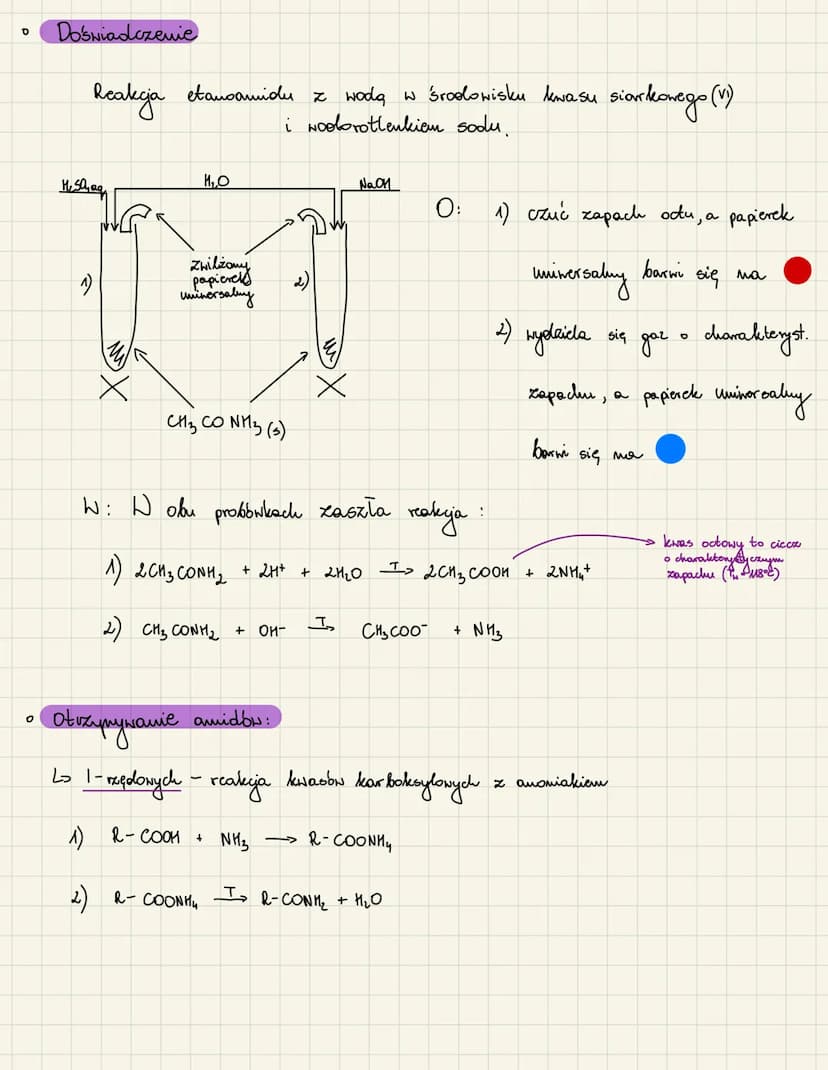 Doświadczenie
Reakcja etanoamidu z wodą w środowisku kwasu siarkowego (VI)
i wodorotlenkiem sodu.
H₂SO₄ aq
H₂O
NaOH
1)
zwilżony
papierek
uniwersalny
2)
CH₃CONH₃(s)
O: 1) czuć zapach octu, a papierek
uniwersalny barwi się na
2) wydziela się gaz o charakteryst.
zapachu, a papierek uniwersalny
barwi się na
W: W obu probówkach zaszła reakcja:
1) 2CH₃CONH₂ + 2H⁺ + 2H₂O T→ 2CH₃COOH + 2NH₄⁺
kwas octowy to ciecz
o charakterystycznym
zapachu (118°C)
2) CH₃CONH₂ + OH⁻ T→ CH₃COO⁻ + NH₃
Otrzymywanie amidów:
↳ I-rzędowych – reakcja kwasów karboksylowych z amoniakiem
1) R-COOH + NH₃ → R-COONH₄
2) R-COONH₄ T→ R-CONH₂ + H₂O